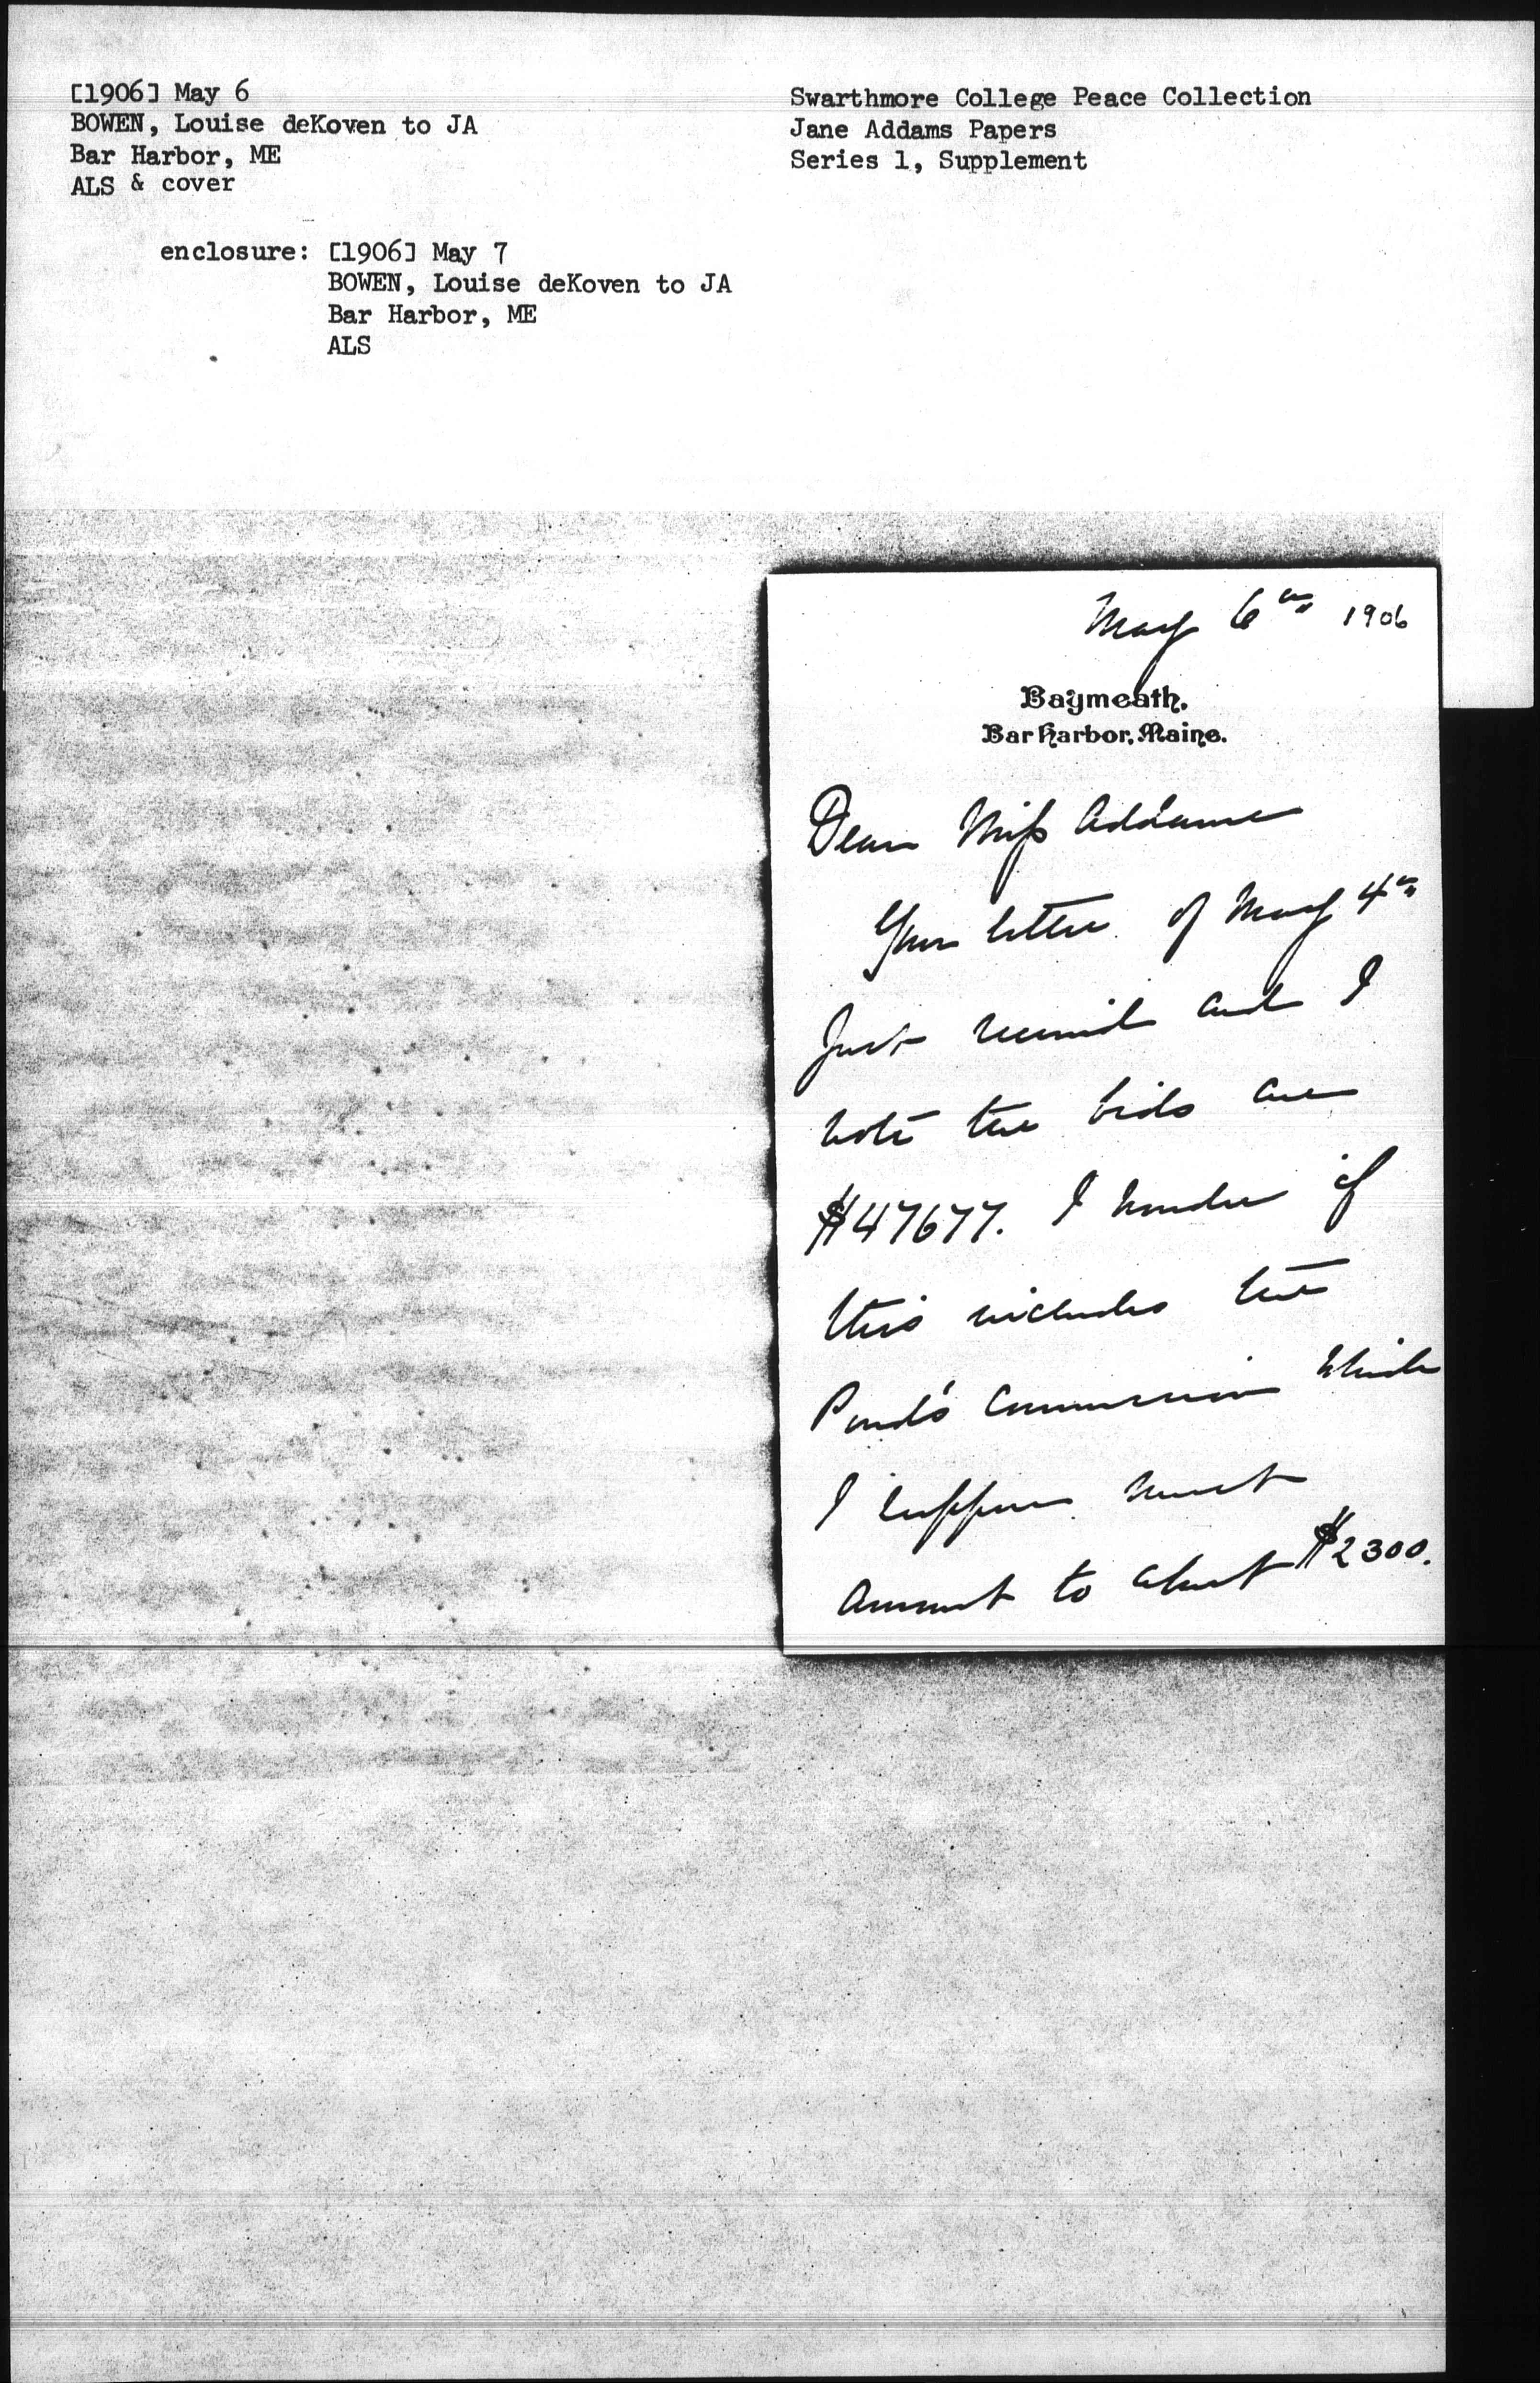 [1906] May 6
BOWEN, Louise deKoven to JA
Bar Harbor, ME
ALS & cover
enclosure: [1906] May 7
BOWEN, Louise deKoven to JA
Bar Harbor, ME
ALS
Swarthmore College Peace Collection
Jane Addams Papers
Series 1, Supplement
May 6th 1906
Baymeath.
Bar Harbor, Maine.
Dear Miss Addams
Your letter of May 4th
Just received and I
note the bids are
$47677. I wonder if
this includes the
Pond's Commission which
I suppose must
amount to about $2300.